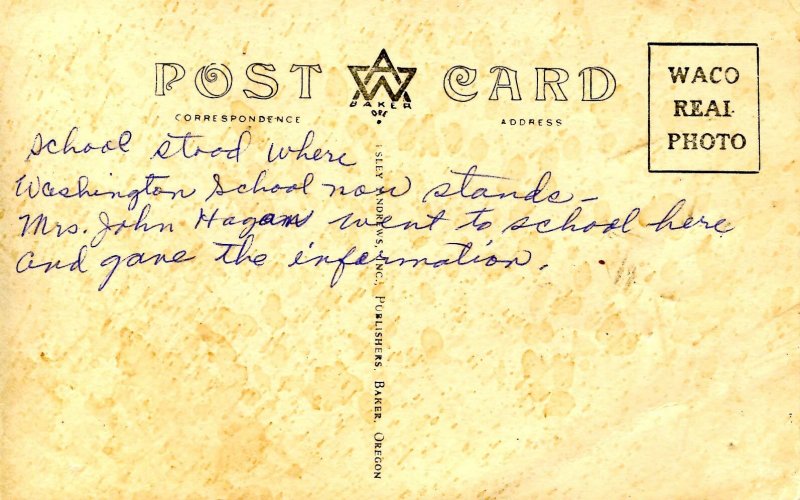 POST CARD
AW
BAKER
ORE
CORRESPONDENCE
ADDRESS
WACO
REAL
PHOTO
School stood where
Washington School now stands—
Mrs. John Hagan went to school here
and gave the information.
SLEY ANDREWS, INC., PUBLISHERS, BAKER, OREGON